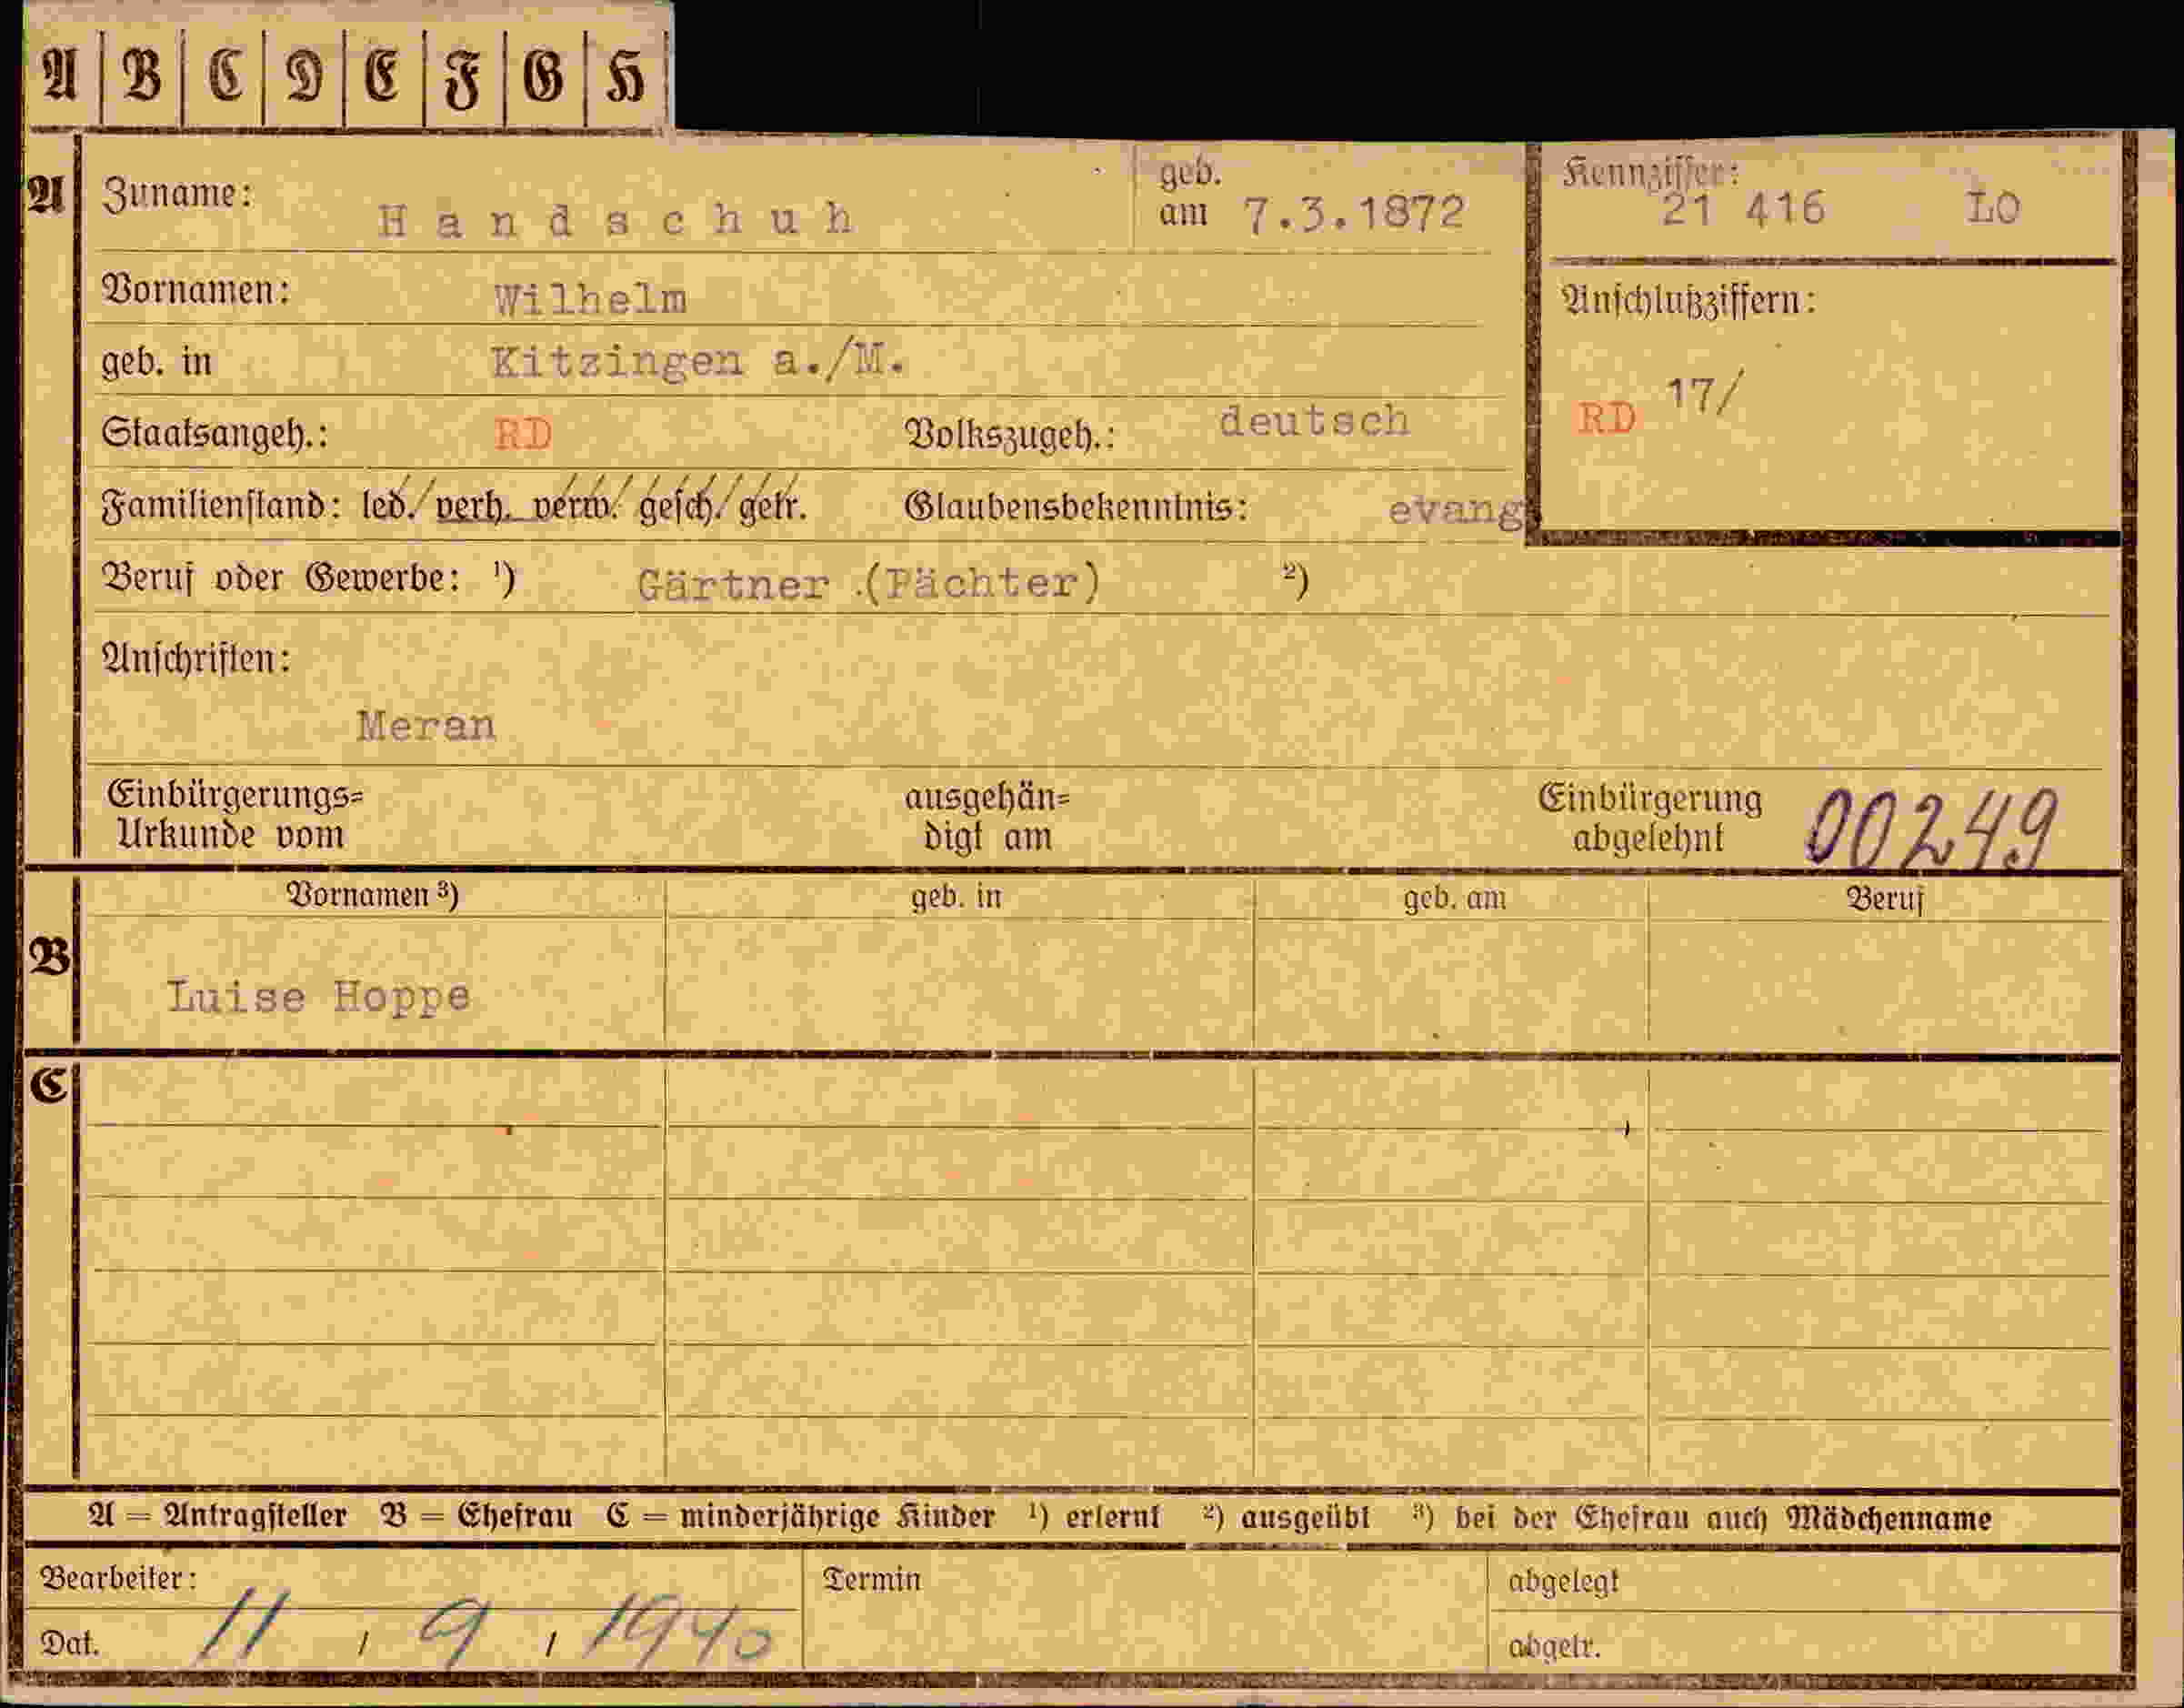 A B C D E F G H
A Zuname: Handschuh geb. am 7.3.1872 Kennziffer: 21 416 LO
Vornamen: Wilhelm Anschlußziffern:
geb. in Kitzingen a./M. RD 17/
Staatsangeh.: RD Volkszugeh.: deutsch
Familienstand: led. verh. verw. gesch. getr. Glaubensbekenntnis: evang
Beruf oder Gewerbe: ¹) Gärtner (Pächter) ²)
Anschriften:
Meran
Einbürgerungs= ausgehän= Einbürgerung 00249
Urkunde vom digt am abgelehnt
Vornamen ³) geb. in geb. am Beruf
B
Luise Hoppe
C
A = Antragsteller B = Ehefrau C = minderjährige Kinder ¹) erlernt ²) ausgeübt ³) bei der Ehefrau auch Mädchenname
Bearbeiter: Termin abgelegt
Dat. 11 / 9 / 1940 abgetr.